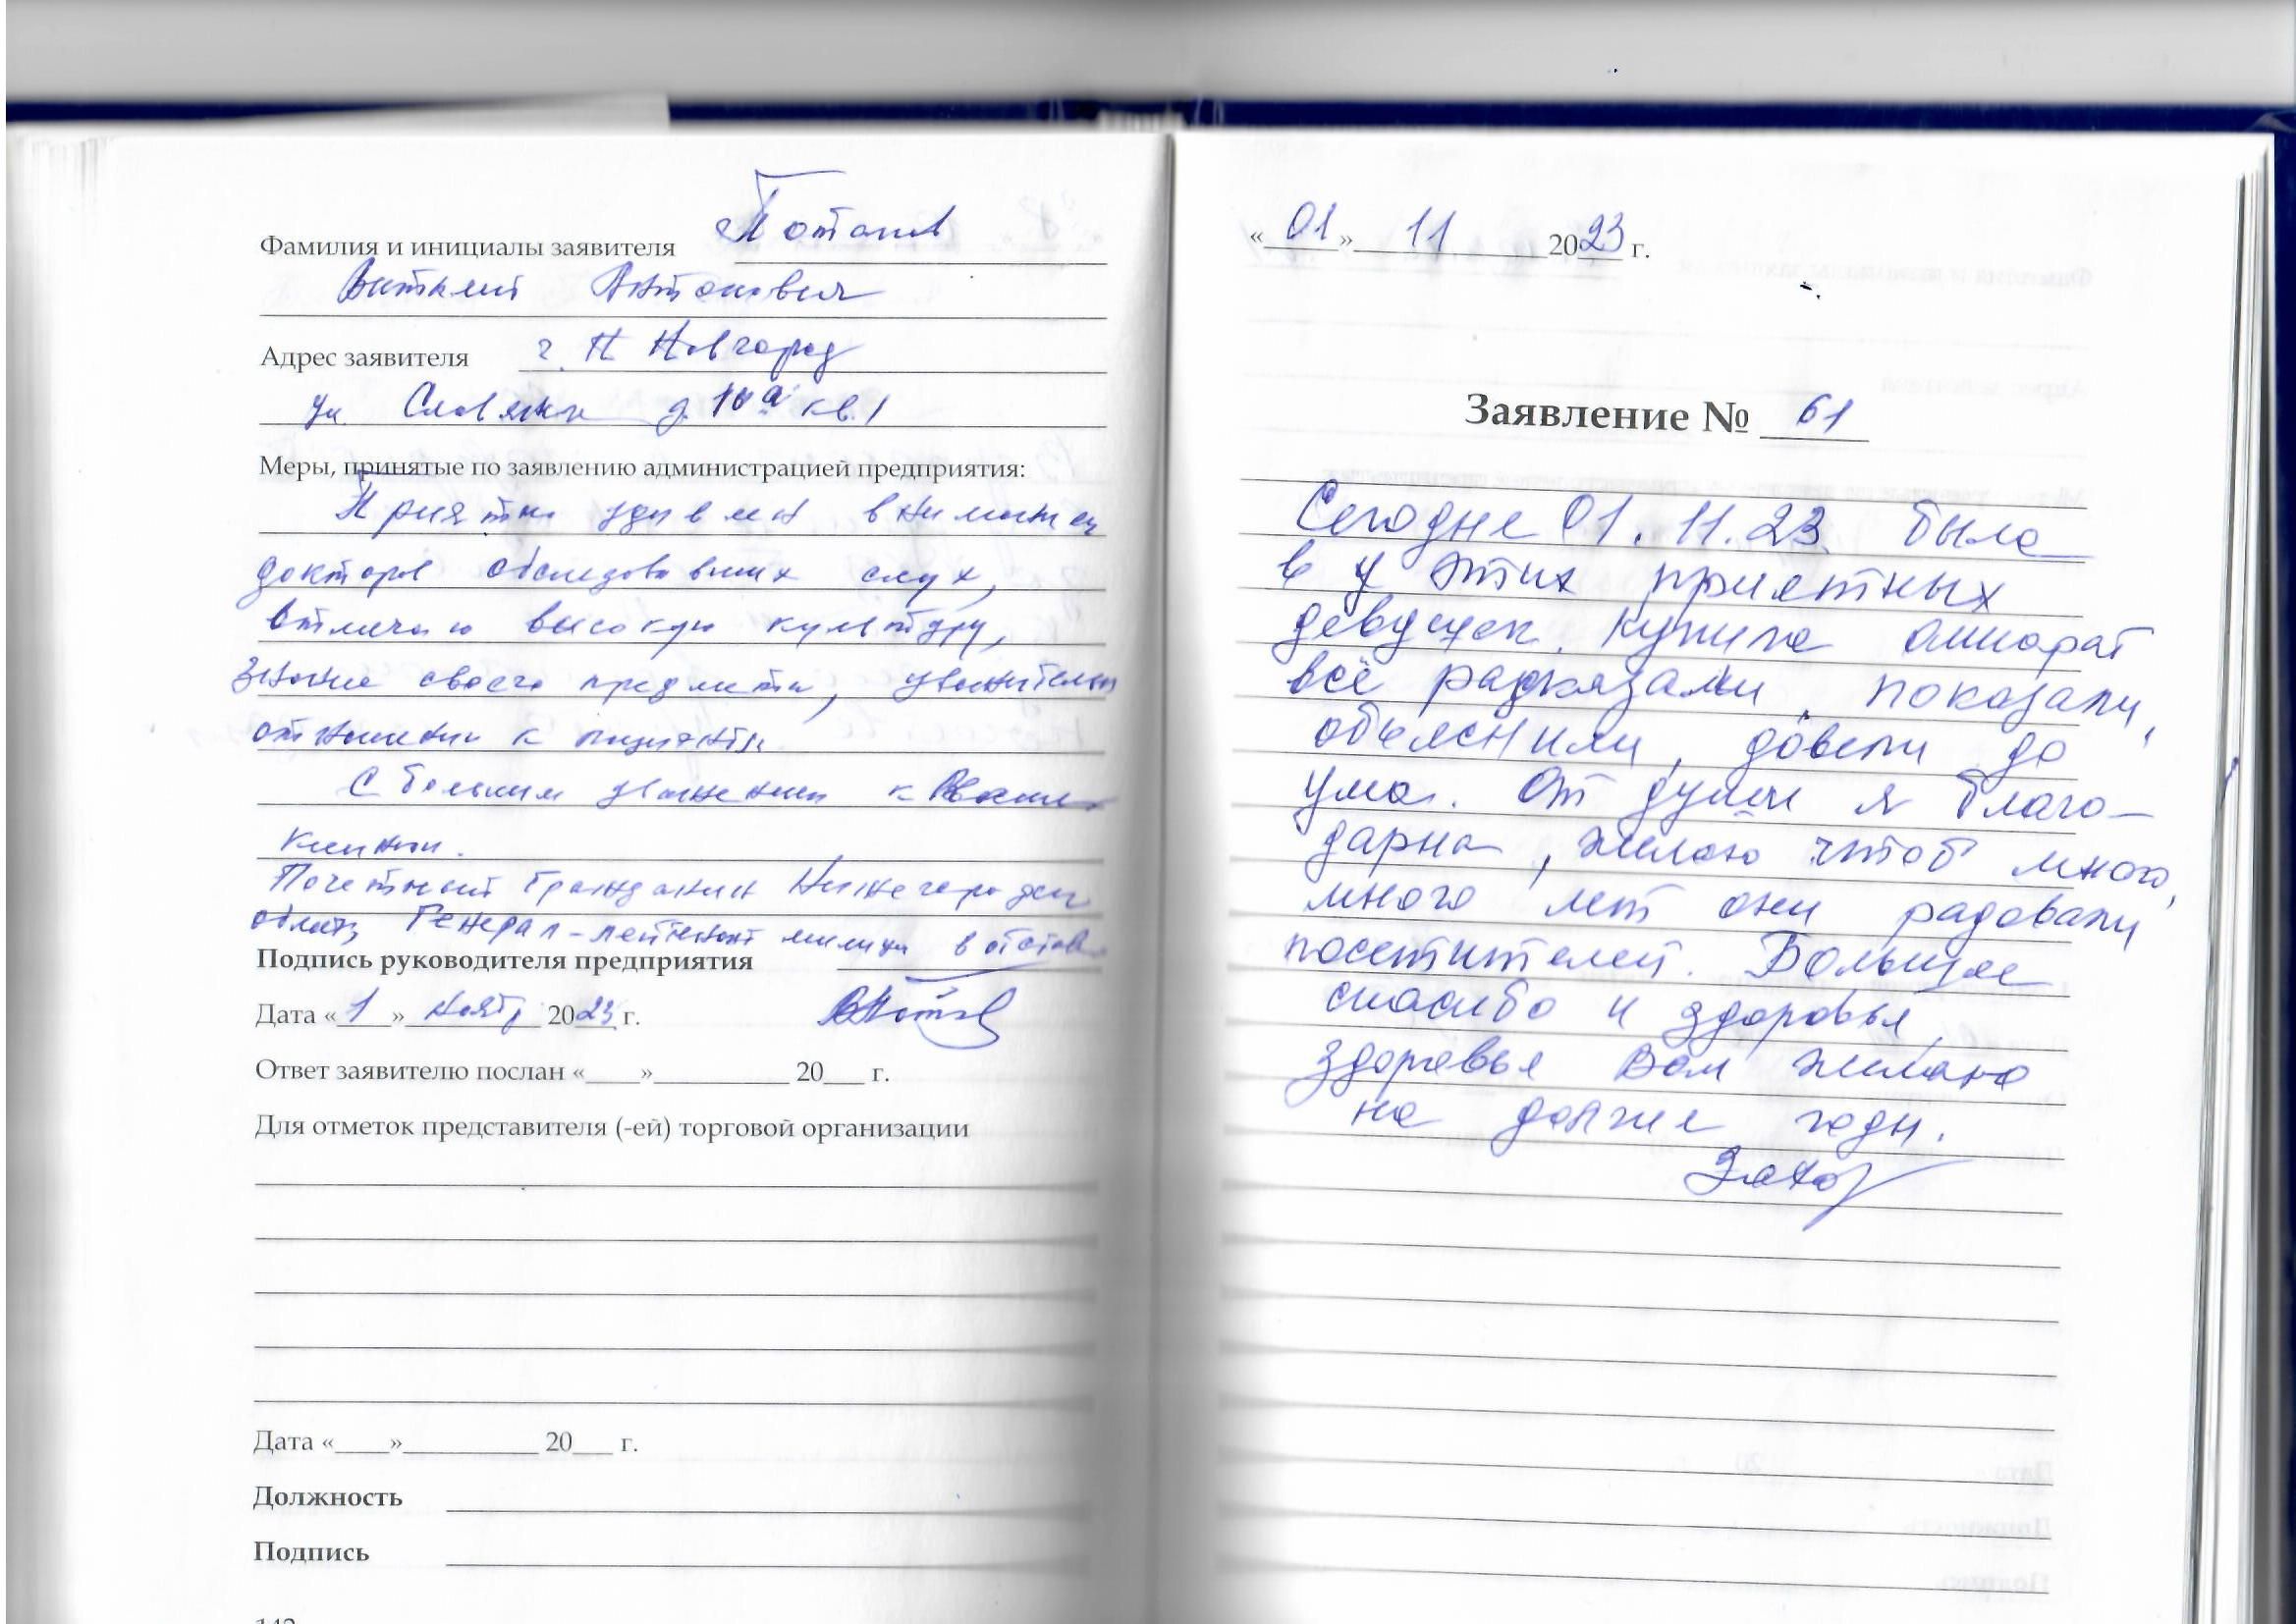 Фамилия и инициалы заявителя Потапов
Виталий Антонович
Адрес заявителя г. Н Новгород
ул Славянск д. 10а кв. 1
Меры, принятые по заявлению администрацией предприятия:
Приятно удивлен внимание
докторов обследовавших слух,
отмечаю высокую культуру,
знание своего предмета, уважительн
отношении к пациентам.
С большим уважением к Вашей
клинике.
Почетный гражданин Нижегородск
области, Генерал-лейтенант милиции в отставке
Подпись руководителя предприятия
Дата «1» нояб 2023 г.
Ответ заявителю послан «____»__________ 20___ г.
Для отметок представителя (-ей) торговой организации
Дата «____»__________ 20___ г.
Должность
Подпись
«01» 11 2023 г.
Заявление № 61
Сегодне 01.11.23. была
в у этих приятных
девушек. Купила аппарат
всё раскказали, показали,
объяснили, довели до
ума. От души я благо-
дарна, желаю чтоб много,
много лет они радовали
посетителей. Большое
спасибо и здоровья,
здоровья Вам желаю
на долгие годы.